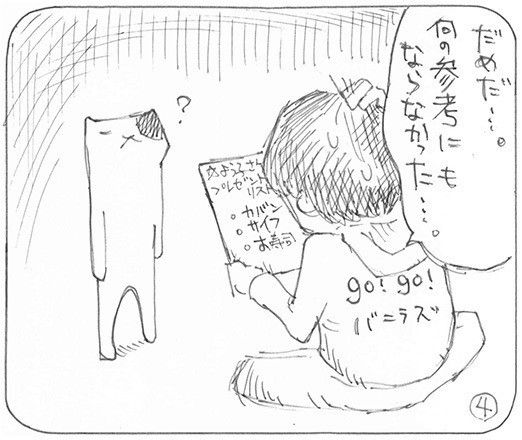 だめだ…。
何の参考にも
ならなかった……。
?
プレゼント
リスト
○カバン
○サイフ
○お寿司
go! go!
バニラズ
④